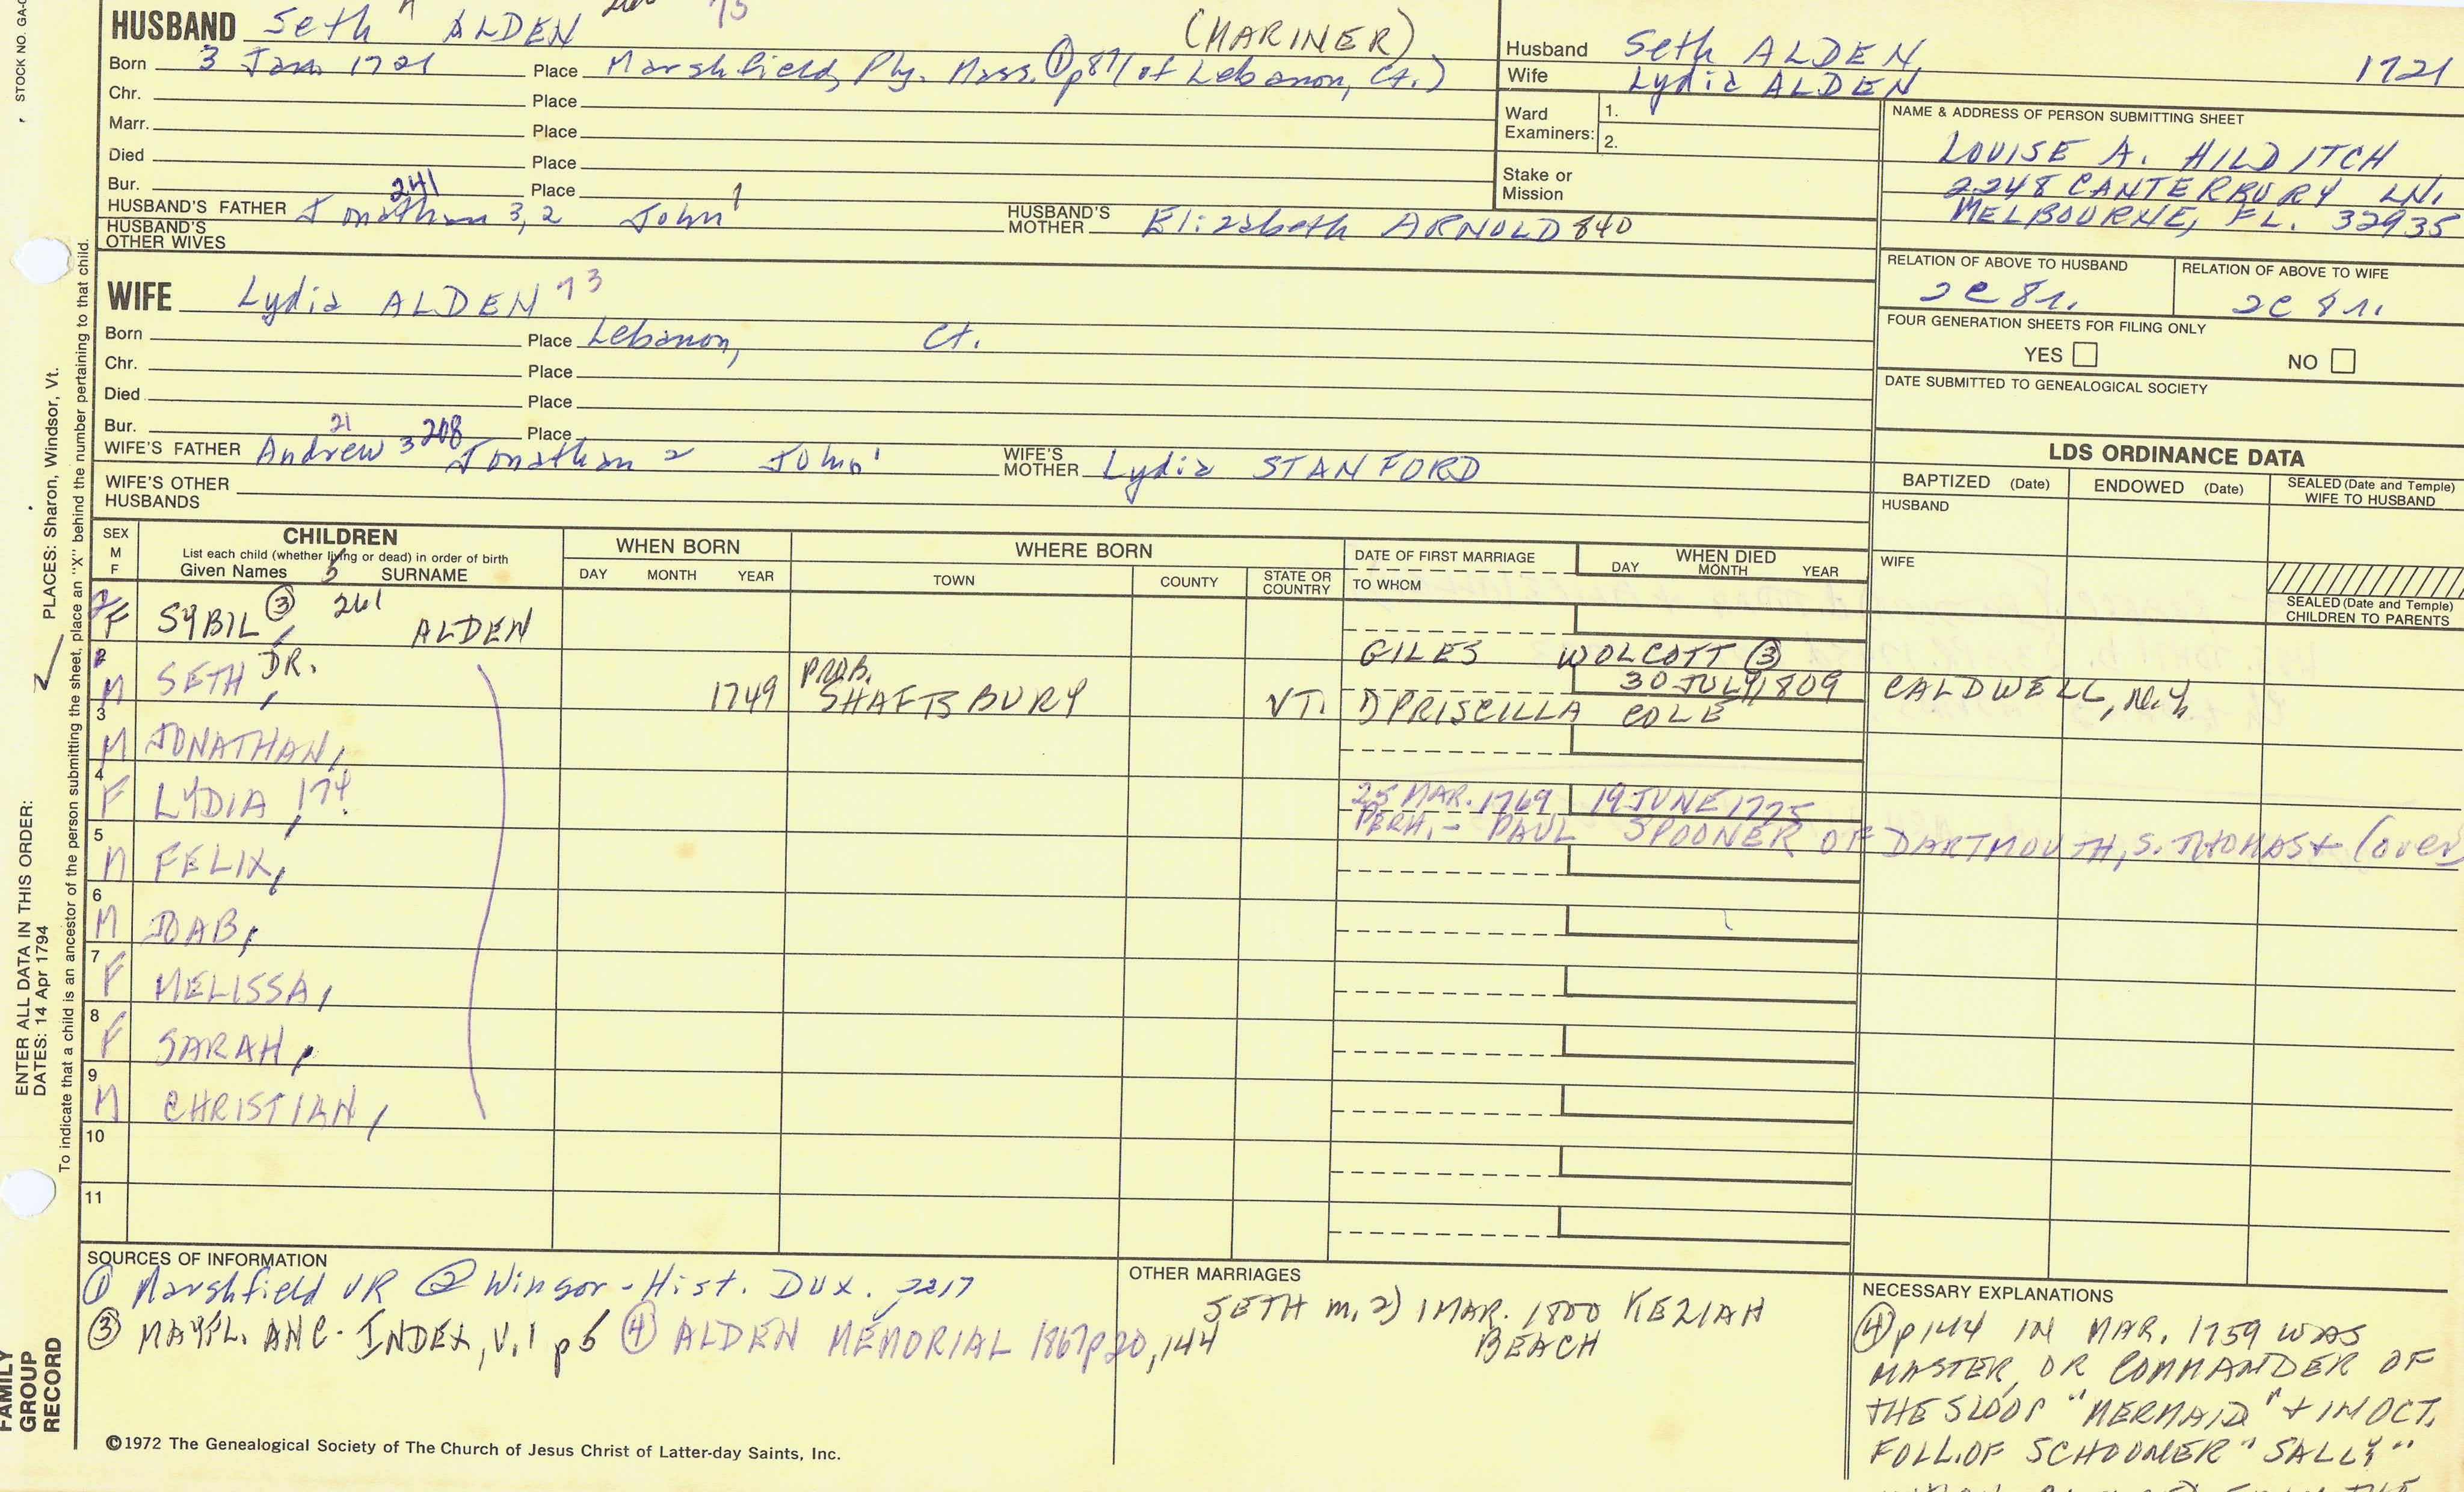 STOCK NO. GA-
HUSBAND Seth ALDEN 73 (MARINER)
Born 3 Jan 1721 Place Marshfield, Ply. Mass. ① p87 (of Lebanon, Ct.)
Chr. Place
Marr. Place
Died Place
Bur. Place
241
HUSBAND'S FATHER Jonathan 3, 2 John 1 HUSBAND'S MOTHER Elizabeth ARNOLD 840
HUSBAND'S OTHER WIVES
WIFE Lydia ALDEN 73
Born Place Lebanon, Ct.
Chr. Place
Died Place
Bur. Place
21 208
WIFE'S FATHER Andrew 3 Jonathan 2 John 1 WIFE'S MOTHER Lydia STANFORD
WIFE'S OTHER HUSBANDS
Husband Seth ALDEN 1721
Wife Lydia ALDEN
Ward Examiners: 1.
2.
Stake or Mission
NAME & ADDRESS OF PERSON SUBMITTING SHEET
LOUISE A. HILDITCH
2248 CANTERBURY LN.
MELBOURNE, FL. 32935
RELATION OF ABOVE TO HUSBAND RELATION OF ABOVE TO WIFE
2C 8r. 2C 8r.
FOUR GENERATION SHEETS FOR FILING ONLY
YES NO
DATE SUBMITTED TO GENEALOGICAL SOCIETY
LDS ORDINANCE DATA
BAPTIZED (Date) ENDOWED (Date) SEALED (Date and Temple) WIFE TO HUSBAND
HUSBAND
WIFE
SEALED (Date and Temple) CHILDREN TO PARENTS
SEX M F
CHILDREN
List each child (whether living or dead) in order of birth
Given Names 5 SURNAME
WHEN BORN
DAY MONTH YEAR
WHERE BORN
TOWN COUNTY STATE OR COUNTRY
DATE OF FIRST MARRIAGE
TO WHOM
WHEN DIED
DAY MONTH YEAR
F SYBIL, ③ 261 ALDEN
GILES WOLCOTT ③
2 M SETH, DR. 1749 PROB. SHAFTSBURY VT. 30 JULY 1809 CALDWELL, N.Y.
PRISCILLA COLE
3 M JONATHAN,
4 F LYDIA, 174 25 MAR. 1769 19 JUNE 1775
PERH. - PAUL SPOONER OF DARTMOUTH, S. THOMAS + (over
5 M FELIX,
6 M JOAB,
7 F MELISSA,
8 F SARAH,
9 M CHRISTIAN,
10
11
SOURCES OF INFORMATION
① Marshfield VR ② Winsor - Hist. Dux. 217
③ MAYFL. ANC. INDEX, V.1 p5 ④ ALDEN MEMORIAL 1867 p20, 144
OTHER MARRIAGES
SETH m. 2) 1 MAR. 1800 KEZIAH
BEACH
NECESSARY EXPLANATIONS
④ p144 IN MAR. 1759 WAS
MASTER, OR COMMANDER OF
THE SLOOP "MERMAID" + IN OCT.
FOLL. OF SCHOONER "SALLY"
©1972 The Genealogical Society of The Church of Jesus Christ of Latter-day Saints, Inc.
ENTER ALL DATA IN THIS ORDER:
DATES: 14 Apr 1794
PLACES: Sharon, Windsor, Vt.
To indicate that a child is an ancestor of the person submitting the sheet, place an "X" behind the number pertaining to that child.
FAMILY GROUP RECORD